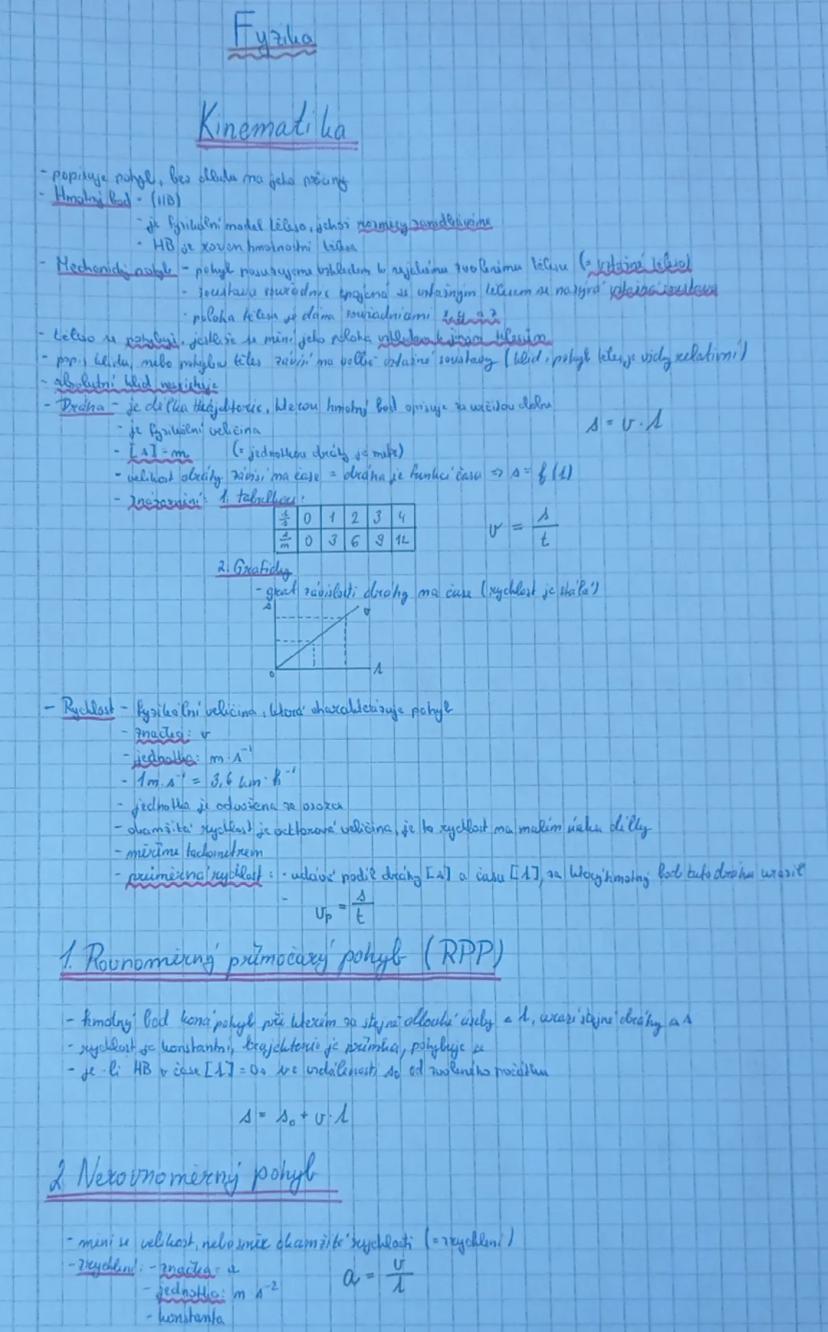 Fyzika
Kinematika
- popisuje pohyb, bez ohledu na jeho příčiny
- Hmotný bod - (HB)
- je fyzikální model tělesa, jehož rozměry zanedbáváme
- HB je roven hmotnosti tělesa
- Mechanický pohyb - pohyb posuzujeme vzhledem k nějakému zvolenému tělesu (= vztažné těleso)
- soustava souřadnic spojená se vztažným tělesem se nazývá vztažná soustava
- poloha tělesa je dána souřadnicemi x, y a z
- těleso je v pohybu, jestliže se mění jeho poloha vzhledem k jiným tělesům
- popis klidu, nebo pohybu těles závisí na volbě vztažné soustavy (klid, pohyb těles je vždy relativní)
- absolutní klid neexistuje
- Dráha - je délka trajektorie, kterou hmotný bod opisuje za určitou dobu
- je fyzikální veličina
s = v · t
- [s] = m (= jednotkou dráhy je metr)
- velikost dráhy závisí na čase = dráha je funkcí času => s = f(t)
- znázornění: 1. tabulkou:
t/s 0 1 2 3 4
s/m 0 3 6 9 12
v = s/t
2. Graficky
- graf závislosti dráhy na čase (rychlost je stálá)
s v
0 t
- Rychlost - fyzikální veličina, která charakterizuje pohyb
- značka: v
- jednotka: m · s⁻¹
- 1m · s⁻¹ = 3,6 km · h⁻¹
- jednotka je odvozena ze vzorce
- okamžitá rychlost je vektorová veličina, je to rychlost na malém úseku délky
- měříme tachometrem
- průměrná rychlost: - udává podíl dráhy [s] a času [t], za který hmotný bod tuto dráhu urazil
- vₚ = s/t
1. Rovnoměrný přímočarý pohyb (RPP)
- hmotný bod koná pohyb při kterém za stejně dlouhé úseky t, urazí stejné dráhy s
- rychlost je konstantní, trajektorie je přímka, pohybuje se
- je-li HB v čase [t] = 0s ve vzdálenosti s₀ od zvoleného počátku
s = s₀ + v · t
2. Nerovnoměrný pohyb
- mění se velikost, nebo směr okamžité rychlosti (= zrychlení)
- zrychlení: - značka: a
a = v/t
- jednotka: m s⁻²
- konstanta